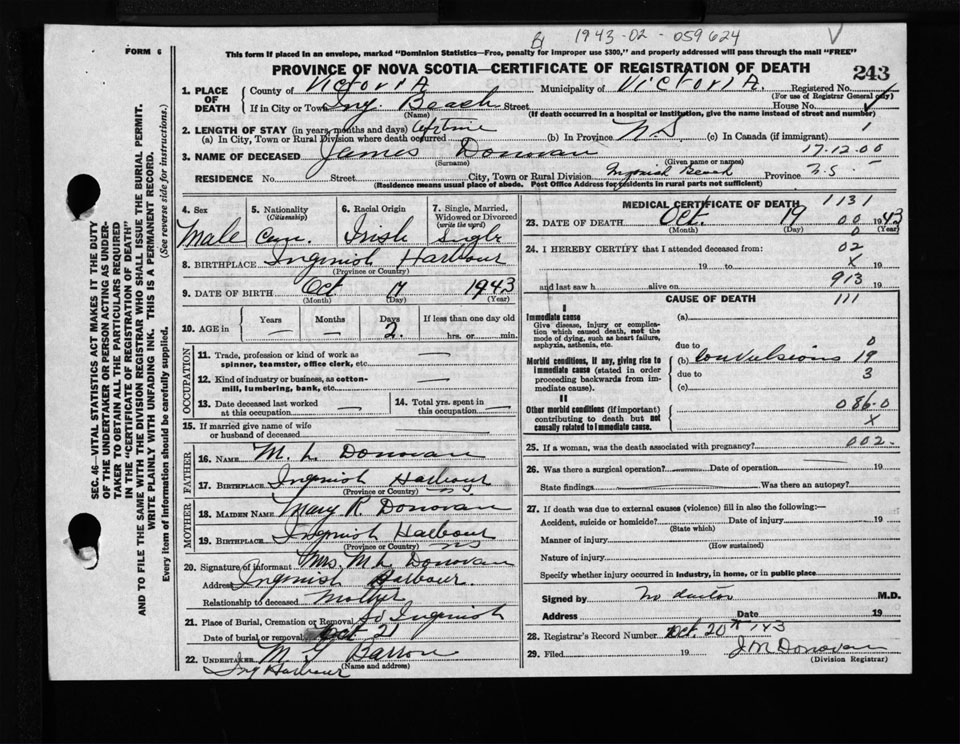 B 1943-02-059624
FORM 6
This form if placed in an envelope, marked "Dominion Statistics—Free, penalty for improper use $300," and properly addressed will pass through the mail "FREE"
PROVINCE OF NOVA SCOTIA—CERTIFICATE OF REGISTRATION OF DEATH 243
1. PLACE OF DEATH County of Victoria Municipality of Victoria. Registered No.
(For use of Registrar General only)
If in City or Town Ing. Beach Street House No.
(Name) (If death occurred in a hospital or institution, give the name instead of street and number)
2. LENGTH OF STAY (in years, months and days) lifetime 1
(a) In City, Town or Rural Division where death occurred (b) In Province N S (c) In Canada (if immigrant)
3. NAME OF DECEASED James Donovan 17.12.00
(Surname) (Given name or names)
RESIDENCE No. Street City, Town or Rural Division Ingonish Beach Province N.S.
(Residence means usual place of abode. Post Office Address for residents in rural parts not sufficient)
4. Sex 5. Nationality (Citizenship) 6. Racial Origin 7. Single, Married, Widowed or Divorced (write the word)
Male Can. Irish Single
8. BIRTHPLACE Ingonish Harbour
(Province or Country)
9. DATE OF BIRTH Oct 17 1943
(Month) (Day) (Year)
10. AGE in Years Months Days If less than one day old
— — 2. hrs. or min.
OCCUPATION
11. Trade, profession or kind of work as spinner, teamster, office clerk, etc. —
12. Kind of industry or business, as cotton-mill, lumbering, bank, etc. —
13. Date deceased last worked at this occupation — 14. Total yrs. spent in this occupation —
15. If married give name of wife or husband of deceased
FATHER
16. NAME M. L. Donovan
17. BIRTHPLACE Ingonish Harbour
(Province or Country) NS
MOTHER
18. MAIDEN NAME Mary R. Donovan
19. BIRTHPLACE Ingonish Harbour
(Province or Country) NS
20. Signature of informant Mrs. M. L. Donovan
Address Ingonish Harbour
Relationship to deceased Mother
21. Place of Burial, Cremation or Removal So Ingonish
Date of burial or removal Oct 21
22. UNDERTAKER M. G Barron
Ing Harbour (Name and address)
MEDICAL CERTIFICATE OF DEATH 1131
23. DATE OF DEATH Oct. 19 00 1943
(Month) (Day) 0 (Year)
24. I HEREBY CERTIFY that I attended deceased from: 02
19 to X 19
and last saw h alive on 913 19
CAUSE OF DEATH 111
I
Immediate cause (a)
Give disease, injury or complication which caused death, not the mode of dying, such as heart failure, asphyxia, asthenia, etc.
due to 0
Morbid conditions, if any, giving rise to immediate cause (stated in order proceeding backwards from immediate cause). (b) Convulsions 19
due to 3
(c)
II
Other morbid conditions (if important) contributing to death but not causally related to immediate cause. 086.0
X
25. If a woman, was the death associated with pregnancy? 002.
26. Was there a surgical operation? Date of operation 19
State findings Was there an autopsy?
27. If death was due to external causes (violence) fill in also the following:—
Accident, suicide or homicide? Date of injury 19
(State which)
Manner of injury
(How sustained)
Nature of injury
Specify whether injury occurred in industry, in home, or in public place
Signed by No doctor M.D.
Address Date 19
28. Registrar's Record Number Oct. 20th 143
29. Filed 19 J M Donovan
(Division Registrar)
SEC. 46—VITAL STATISTICS ACT MAKES IT THE DUTY
OF THE UNDERTAKER OR PERSON ACTING AS UNDER-
TAKER TO OBTAIN ALL THE PARTICULARS REQUIRED
IN THE "CERTIFICATE OF REGISTRATION OF DEATH"
AND TO FILE THE SAME WITH THE DIVISION REGISTRAR WHO SHALL ISSUE THE BURIAL PERMIT.
WRITE PLAINLY WITH UNFADING INK. THIS IS A PERMANENT RECORD.
Every item of information should be carefully supplied. (See reverse side for instructions.)